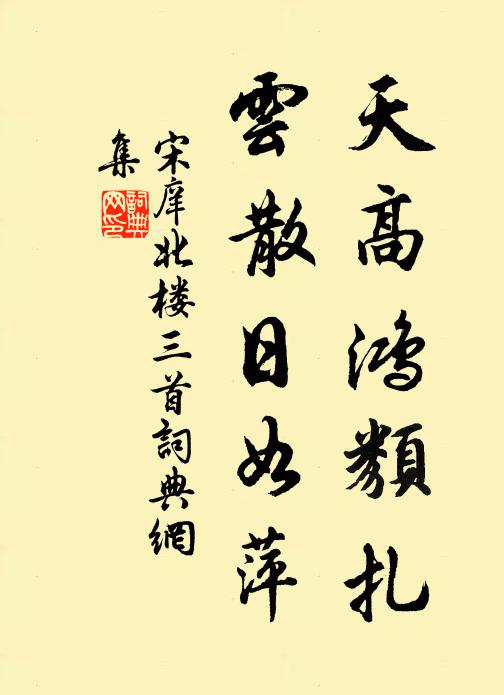 天高鸿類扎
雲散日如萍
宋庠北楼三首詞典網
集
詞典网印